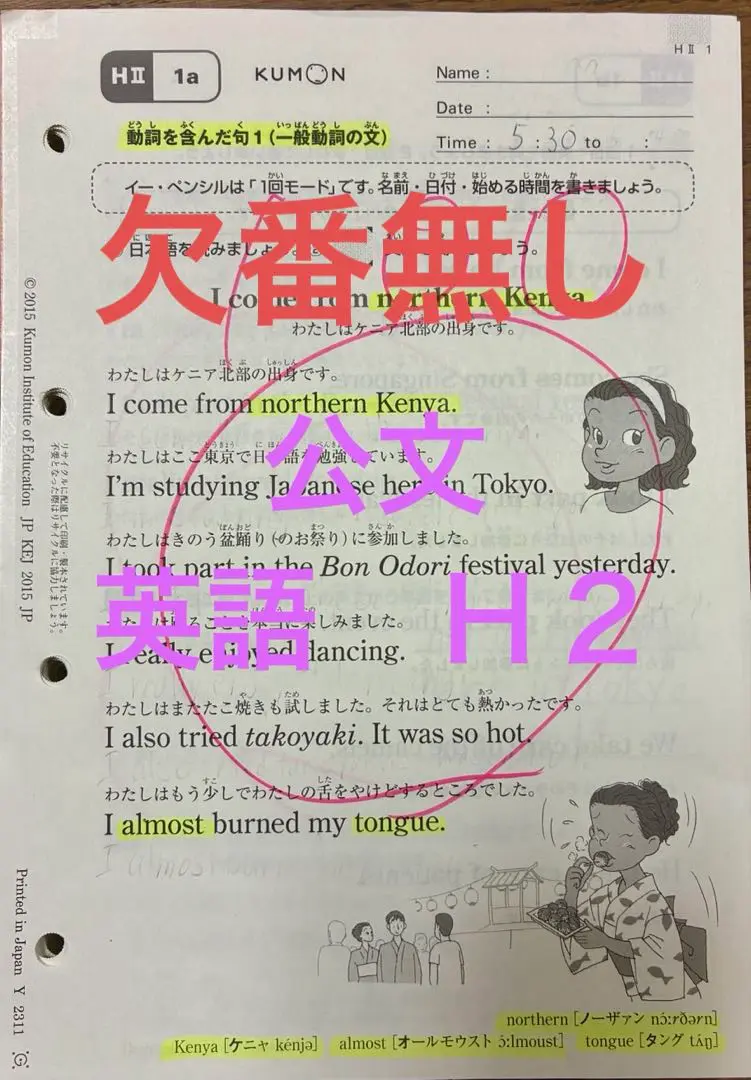 HⅡ 1
HⅡ 1a
KUMON
Name :
Date :
Time : 5 : 30 to :
動詞を含んだ句1(一般動詞の文)
イー・ペンシルは「1回モード」です。名前・日付・始める時間を書きましょう。
欠番無し
I come from northern Kenya.
わたしはケニア北部の出身です。
わたしはケニア北部の出身です。
I come from northern Kenya.
公文
わたしはここ東京で日本語を勉強しています。
I'm studying Japanese here in Tokyo.
わたしはきのう盆踊り(のお祭り)に参加しました。
I took part in the Bon Odori festival yesterday.
英語 H2
わたしは踊ることを本当に楽しみました。
I really enjoyed dancing.
わたしはまたたこ焼きも試しました。それはとても熱かったです。
I also tried takoyaki. It was so hot.
わたしはもう少しでわたしの舌をやけどするところでした。
I almost burned my tongue.
I almost
northern [ノーザァン nɔ́ːrðərn]
Kenya [ケニャ kénjə] almost [オールモウスト ɔ́ːlmoust] tongue [タング tʌ́ŋ]
© 2015 Kumon Institute of Education JP KEJ 2015 JP
リサイクルに配慮して印刷・製本されています。
不要となった際はリサイクルに協力しましょう。
Printed in Japan Y 2311